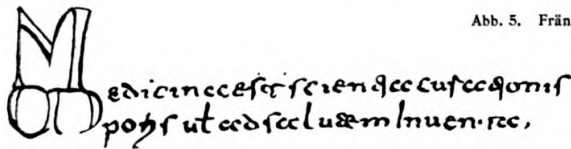 Abb. 5. Frän
Medicina est scientia curationis
ut ad salutem Inuen·ta,